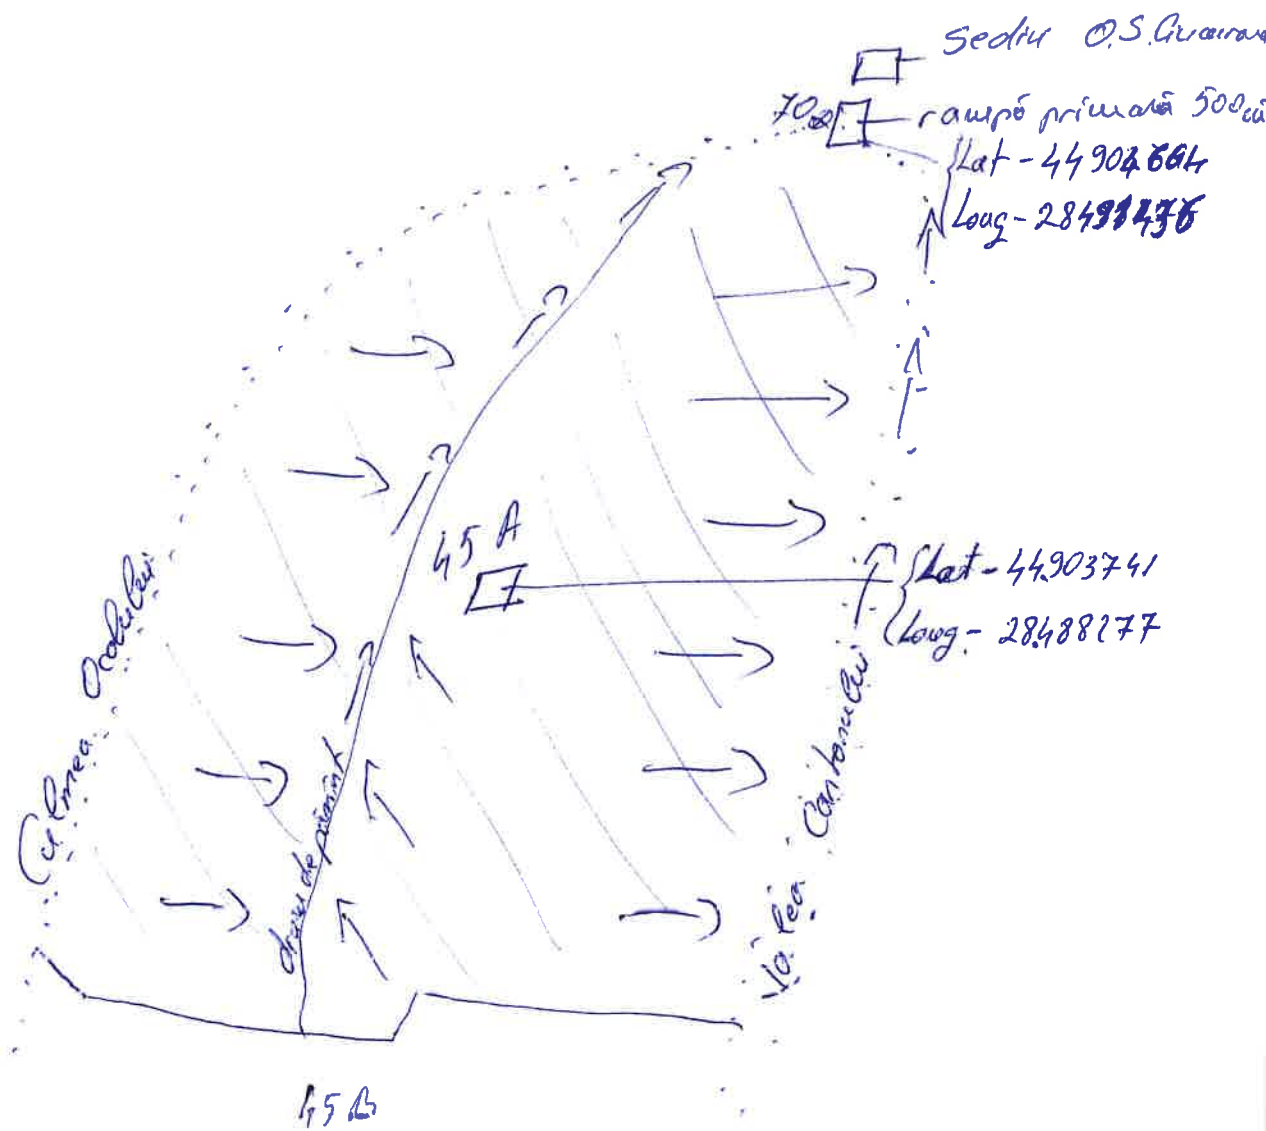 Sediu O.S.
70
rampă primară 500
Lat - 44904664
Long - 28491476
45 A
Lat - 44.903741
Long - 28.488277
Culmea Ocolului
drum de pămînt
Valea Cantonului
45 B